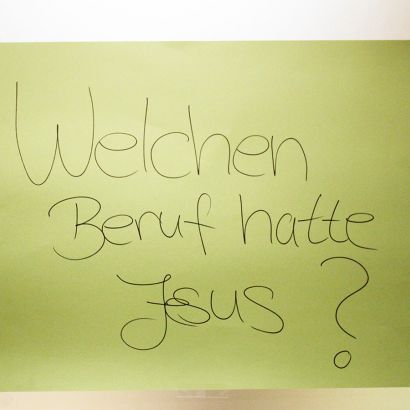 Welchen
Beruf hatte
Jesus?